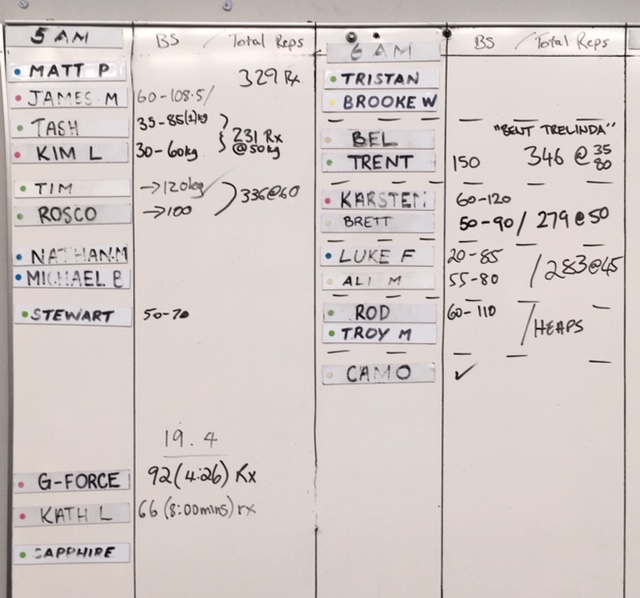 5 AM BS / Total Reps
MATT P 329 Rx
JAMES. M 60-108.5/
TASH 35-85(1)kg
KIM L 30-60kg
231 Rx
@50kg
TIM →120kg
ROSCO →100
336@60
NATHAN.M
MICHAEL B
STEWART 50-70
19.4
G-FORCE 92(4:26) Rx
KATH L 66(8:00mins) rx
SAPPHIRE
6 AM BS / Total Reps
TRISTAN
BROOKE W
"BENT TRELINDA"
BEL
TRENT 150 346 @ 35
80
KARSTEN 60-120
BRETT 50-90/ 279@50
LUKE F 20-85
ALI M 55-80
/283@45
ROD 60-110
TROY M
/HEAPS
CAMO ✓